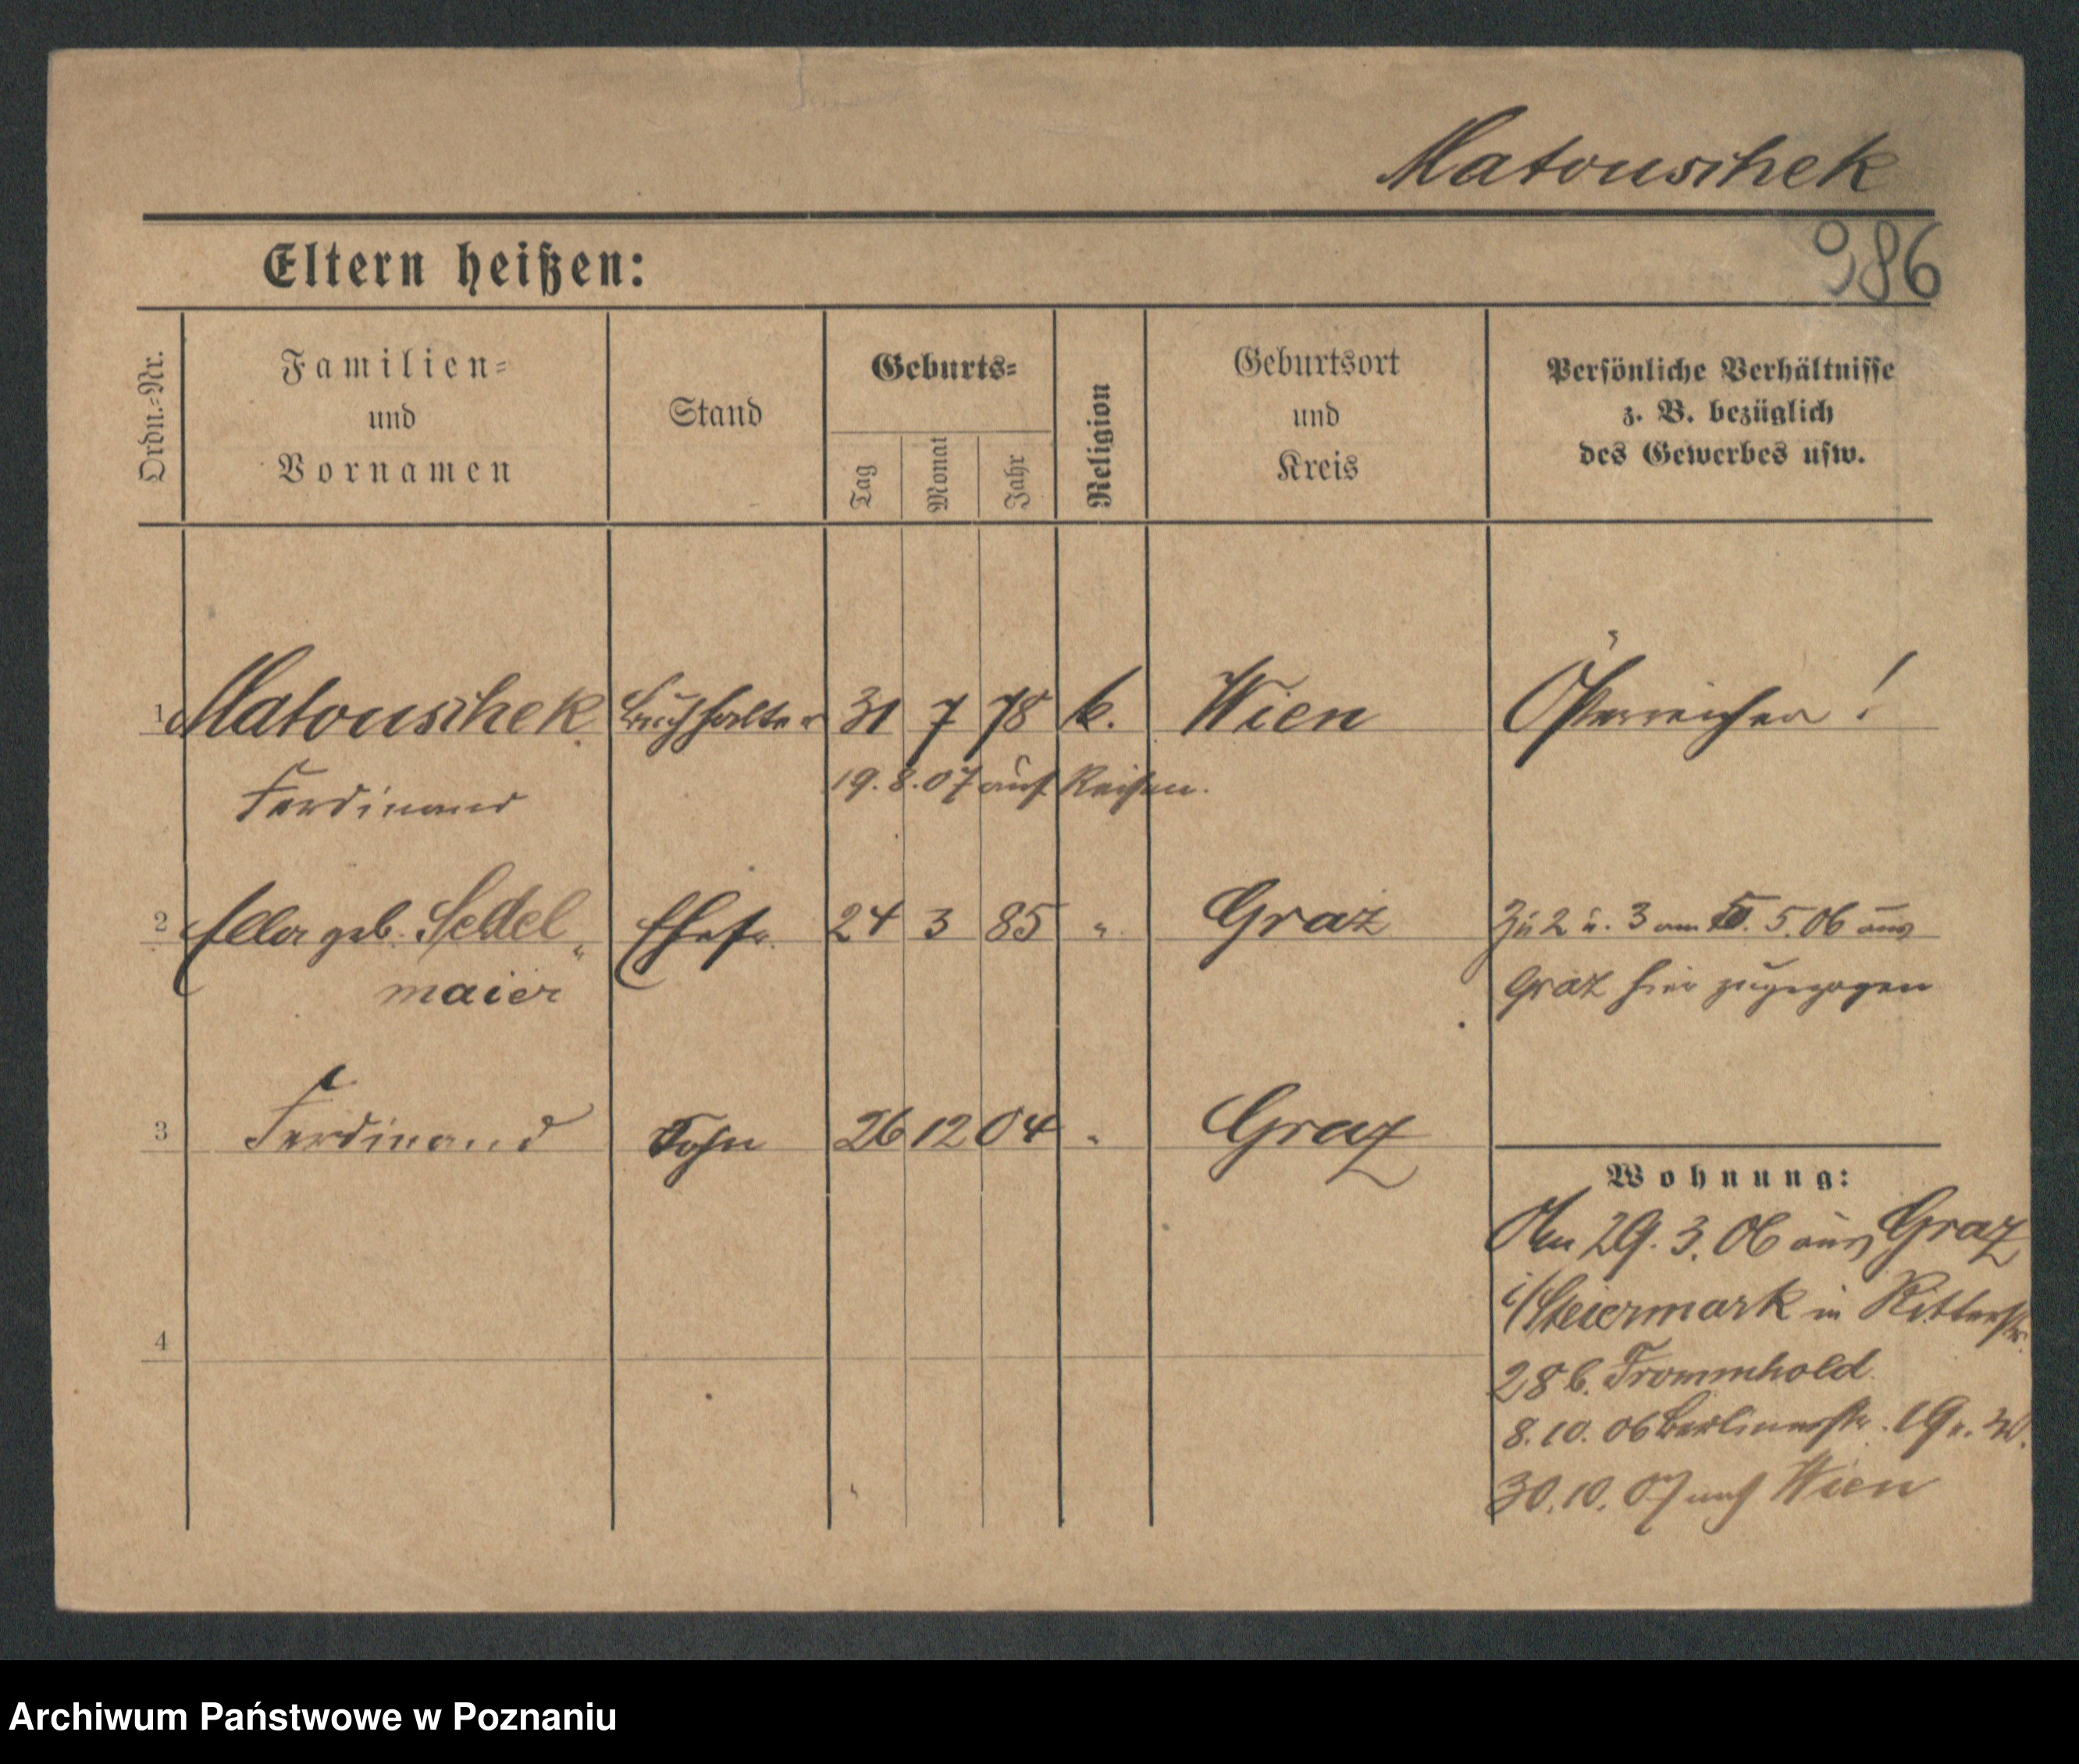 Matouschek
986
Eltern heißen:
Ordn.-Nr.
Familien-
und
Vornamen
Stand
Geburts-
Tag
Monat
Jahr
Religion
Geburtsort
und
Kreis
Persönliche Verhältnisse
z. B. bezüglich
des Gewerbes usw.
1 Matouschek Buchhalter 31 7 78 k. Wien Österreicher!
Ferdinand
19.8.07 auf Reisen.
2 Ella geb. Sedel„ Ehefr. 24 3 85 " Graz Zu 2 u. 3 am 5.06 aus
maier Graz hier zugezogen
3 Ferdinand Sohn 26 12 04 " Graz
Wohnung:
Am 29.3.06 aus Graz
i/Steiermark in Ritterstr.
28 b. Trommhold
8.10.06 Berlinerstr. 19
30.10.07 nach Wien
4
Archiwum Państwowe w Poznaniu